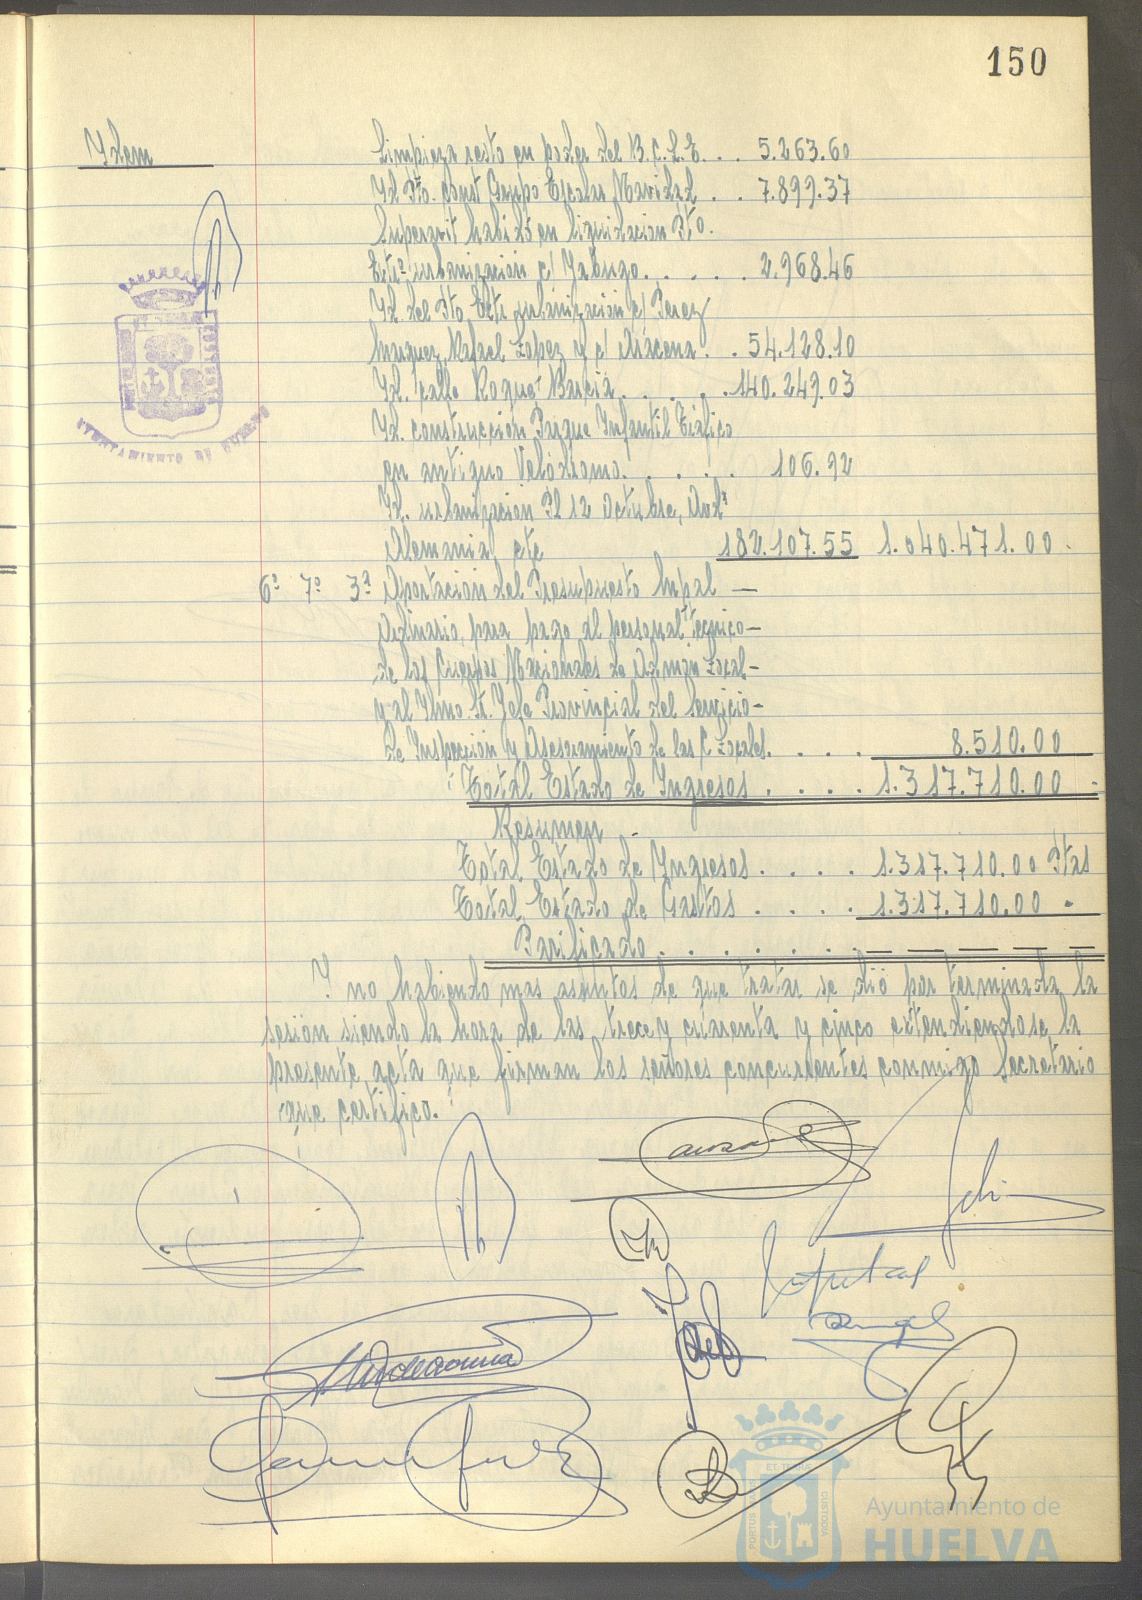 150
Idem
Limpieza resto en poder del B.C.L.E. . . 5.263.60
Id. Pto. const Grupo Escolar Navidad . . 7.899.37
Superavit habido en liquidacion Pto.
Extº urbanizacion c/ Jabugo. . . . . 2.968.46
Id. del Pto. Ext. urbanizacion c/ Perez
Marquez, Rafael Lopez y c/ Aracena . . 54.128.10
Id. calle Roque Barcia . . . . . 140.249.03
Id. construccion Parque Infantil Trafico
en antiguo Velódromo. . . . . 106.92
Id. urbanizacion Pl 12 Octubre, Avdª
Alemania, etc 182.107.55 1.040.471.00.
6º 7º 3ª Aportación del Presupuesto Mpal —
Ordinario, para pago al personal técnico—
de los Cuerpos Nacionales de Admón Local—
y al Ilmo. Sr. Jefe Provincial del Servicio—
de Inspección y Asesoramiento de las C. Locales. . . . 8.510.00
Total Estado de Ingresos . . . . 1.317.710.00 -
Resumen
Total Estado de Ingresos . . . . 1.317.710.00 Ptas
Total Estado de Gastos . . . . 1.317.710.00 -
Parificado . . . . . . . — — — — —
Y no habiendo mas asuntos de que tratar se dió por terminada la
sesión siendo la hora de las trece y cuarenta y cinco extendiendose la
presente acta que firman los señores concurrentes conmigo Secretario
que certifico.
AYUNTAMIENTO DE HUELVA
ET TERRA
PORTUS
CUSTODIA
Ayuntamiento de
HUELVA